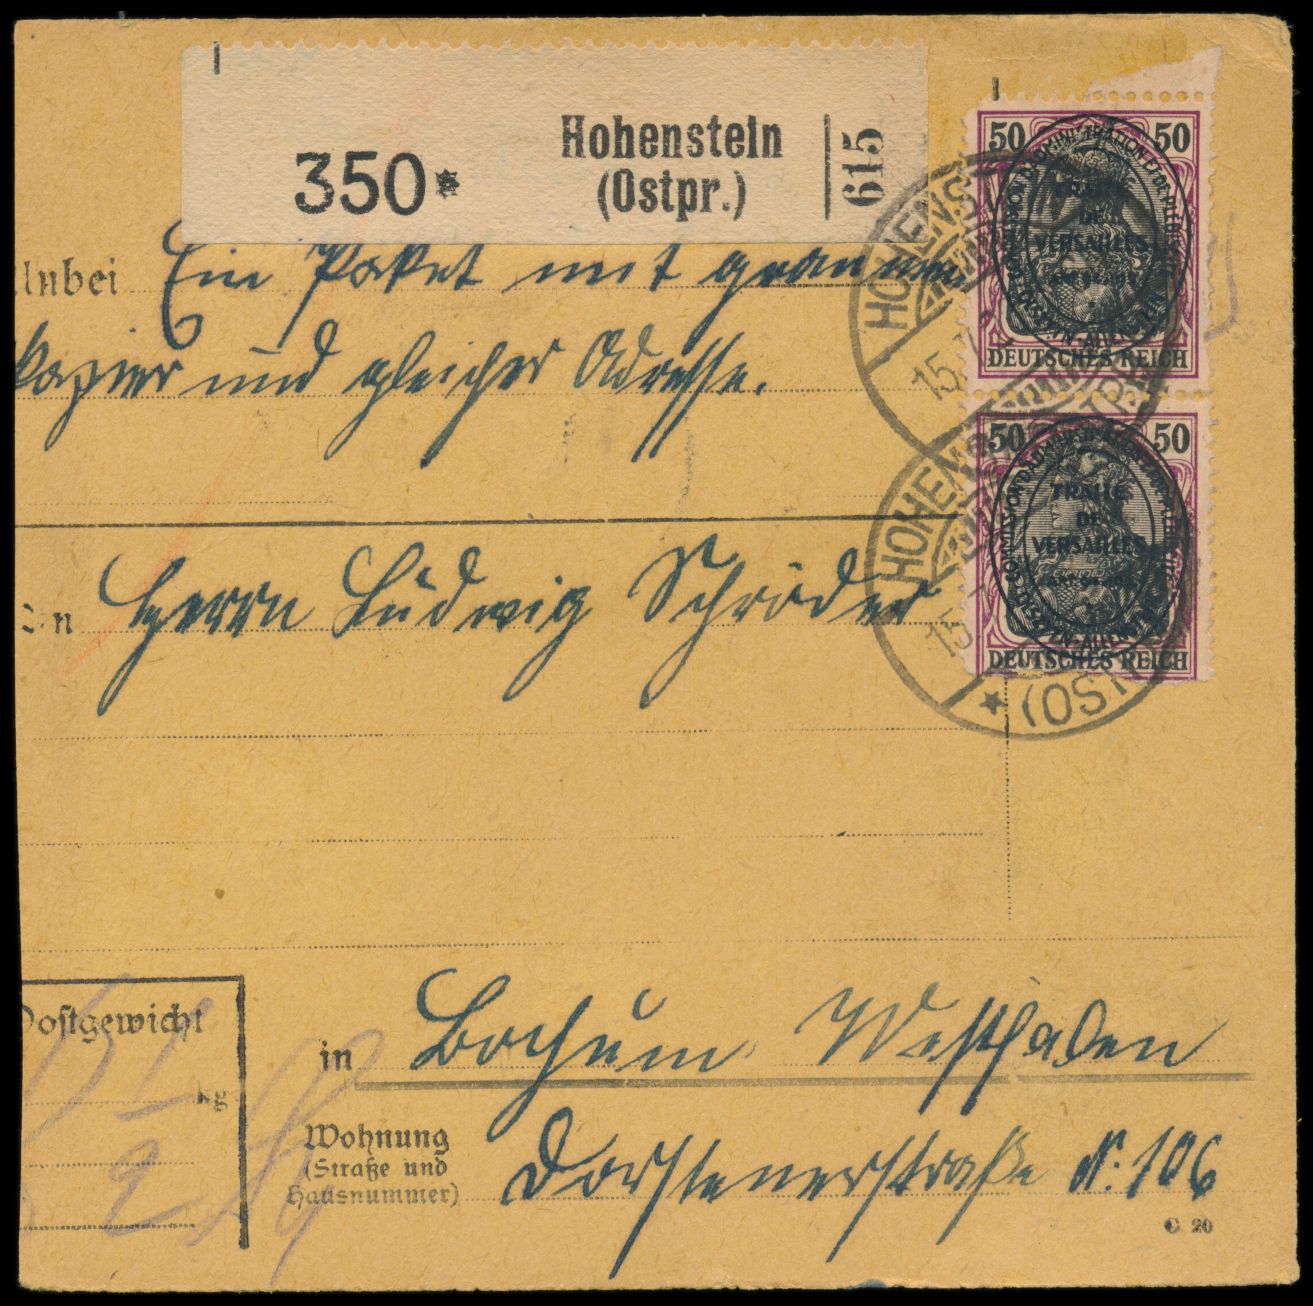 350*
Hohenstein
(Ostpr.)
615
50 50
TRAITÉ
DE
VERSAILLES
DEUTSCHES REICH
50 50
TRAITÉ
DE
VERSAILLES
DEUTSCHES REICH
HOHENST
15.
HOHENS
15.
(OST
Anbei Ein Paket mit grauem
papier und gleicher Adresse.
An Herrn Ludwig Schröder
Postgewicht
kg
in Bochum Westfalen
Wohnung
(Straße und
Hausnummer)
Dorstenerstraße N: 106
C 20